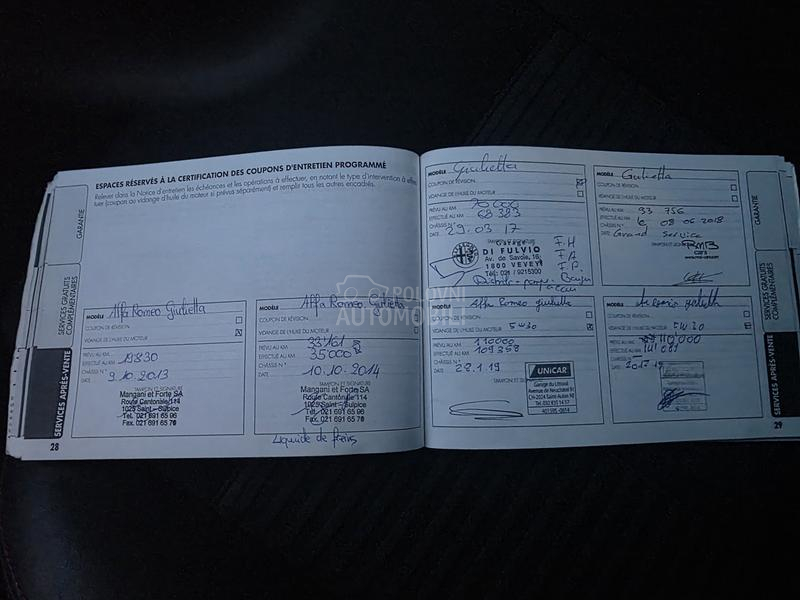 ESPACES RÉSERVÉS À LA CERTIFICATION DES COUPONS D'ENTRETIEN PROGRAMMÉ
Relever dans la Notice d'entretien les échéances et les opérations à effectuer, en notant le type d'intervention à effec-
tuer (coupon ou vidange d'huile du moteur si prévus séparément) et remplir tous les autres encadrés.
GARANTIE
SERVICES GRATUITS
COMPLÉMENTAIRES
SERVICES APRÈS-VENTE
28
MODÈLE Alfa Romeo Giulietta
COUPON DE RÉVISION
VIDANGE DE L'HUILE DU MOTEUR
PRÉVU AU KM
EFFECTUÉ AU KM 19830
CHÂSSIS N°
DATE 9.10.2013
TAMPON ET SIGNATURE
Mangani et Forte SA
Route Cantonale 114
1025 Saint-Sulpice
Tél. 021 691 65 96
Fax. 021 691 65 76
MODÈLE Alfa Romeo Giulietta
COUPON DE RÉVISION
VIDANGE DE L'HUILE DU MOTEUR
PRÉVU AU KM 33161
EFFECTUÉ AU KM 35000
CHÂSSIS N°
DATE 10.10.2014
TAMPON ET SIGNATURE
Mangani et Forte SA
Route Cantonale 114
1025 Saint-Sulpice
Tél. 021 691 65 96
Fax. 021 691 65 76
Liquide de freins
MODÈLE Giulietta
COUPON DE RÉVISION
VIDANGE DE L'HUILE DU MOTEUR
PRÉVU AU KM 70000
EFFECTUÉ AU KM 68383
CHÂSSIS N°
DATE 29.03.17
DI FULVIO
Av. de Savoie, 16
1800 VEVEY
Tél. 021 / 9215300
F.H
F.A
F.P.
MODÈLE Giulietta
COUPON DE RÉVISION
VIDANGE DE L'HUILE DU MOTEUR
PRÉVU AU KM
EFFECTUÉ AU KM 93 756
CHÂSSIS N° le 08 06 2018
DATE Grand Service
RMB
cars
MODÈLE Alfa Romeo Giulietta
COUPON DE RÉVISION 5W30
VIDANGE DE L'HUILE DU MOTEUR
PRÉVU AU KM 110000
EFFECTUÉ AU KM 109358
CHÂSSIS N°
DATE 28.1.19
TAMPON ET
UNICAR
Garage du Littoral
MODÈLE
COUPON DE RÉVISION
VIDANGE DE L'HUILE DU MOTEUR 5W30
PRÉVU AU KM 110000
EFFECTUÉ AU KM
CHÂSSIS N°
DATE
GARANTIE
SERVICES GRATUITS
COMPLÉMENTAIRES
SERVICES APRÈS-VENTE
29
POLOVNI
AUTOMOBILI